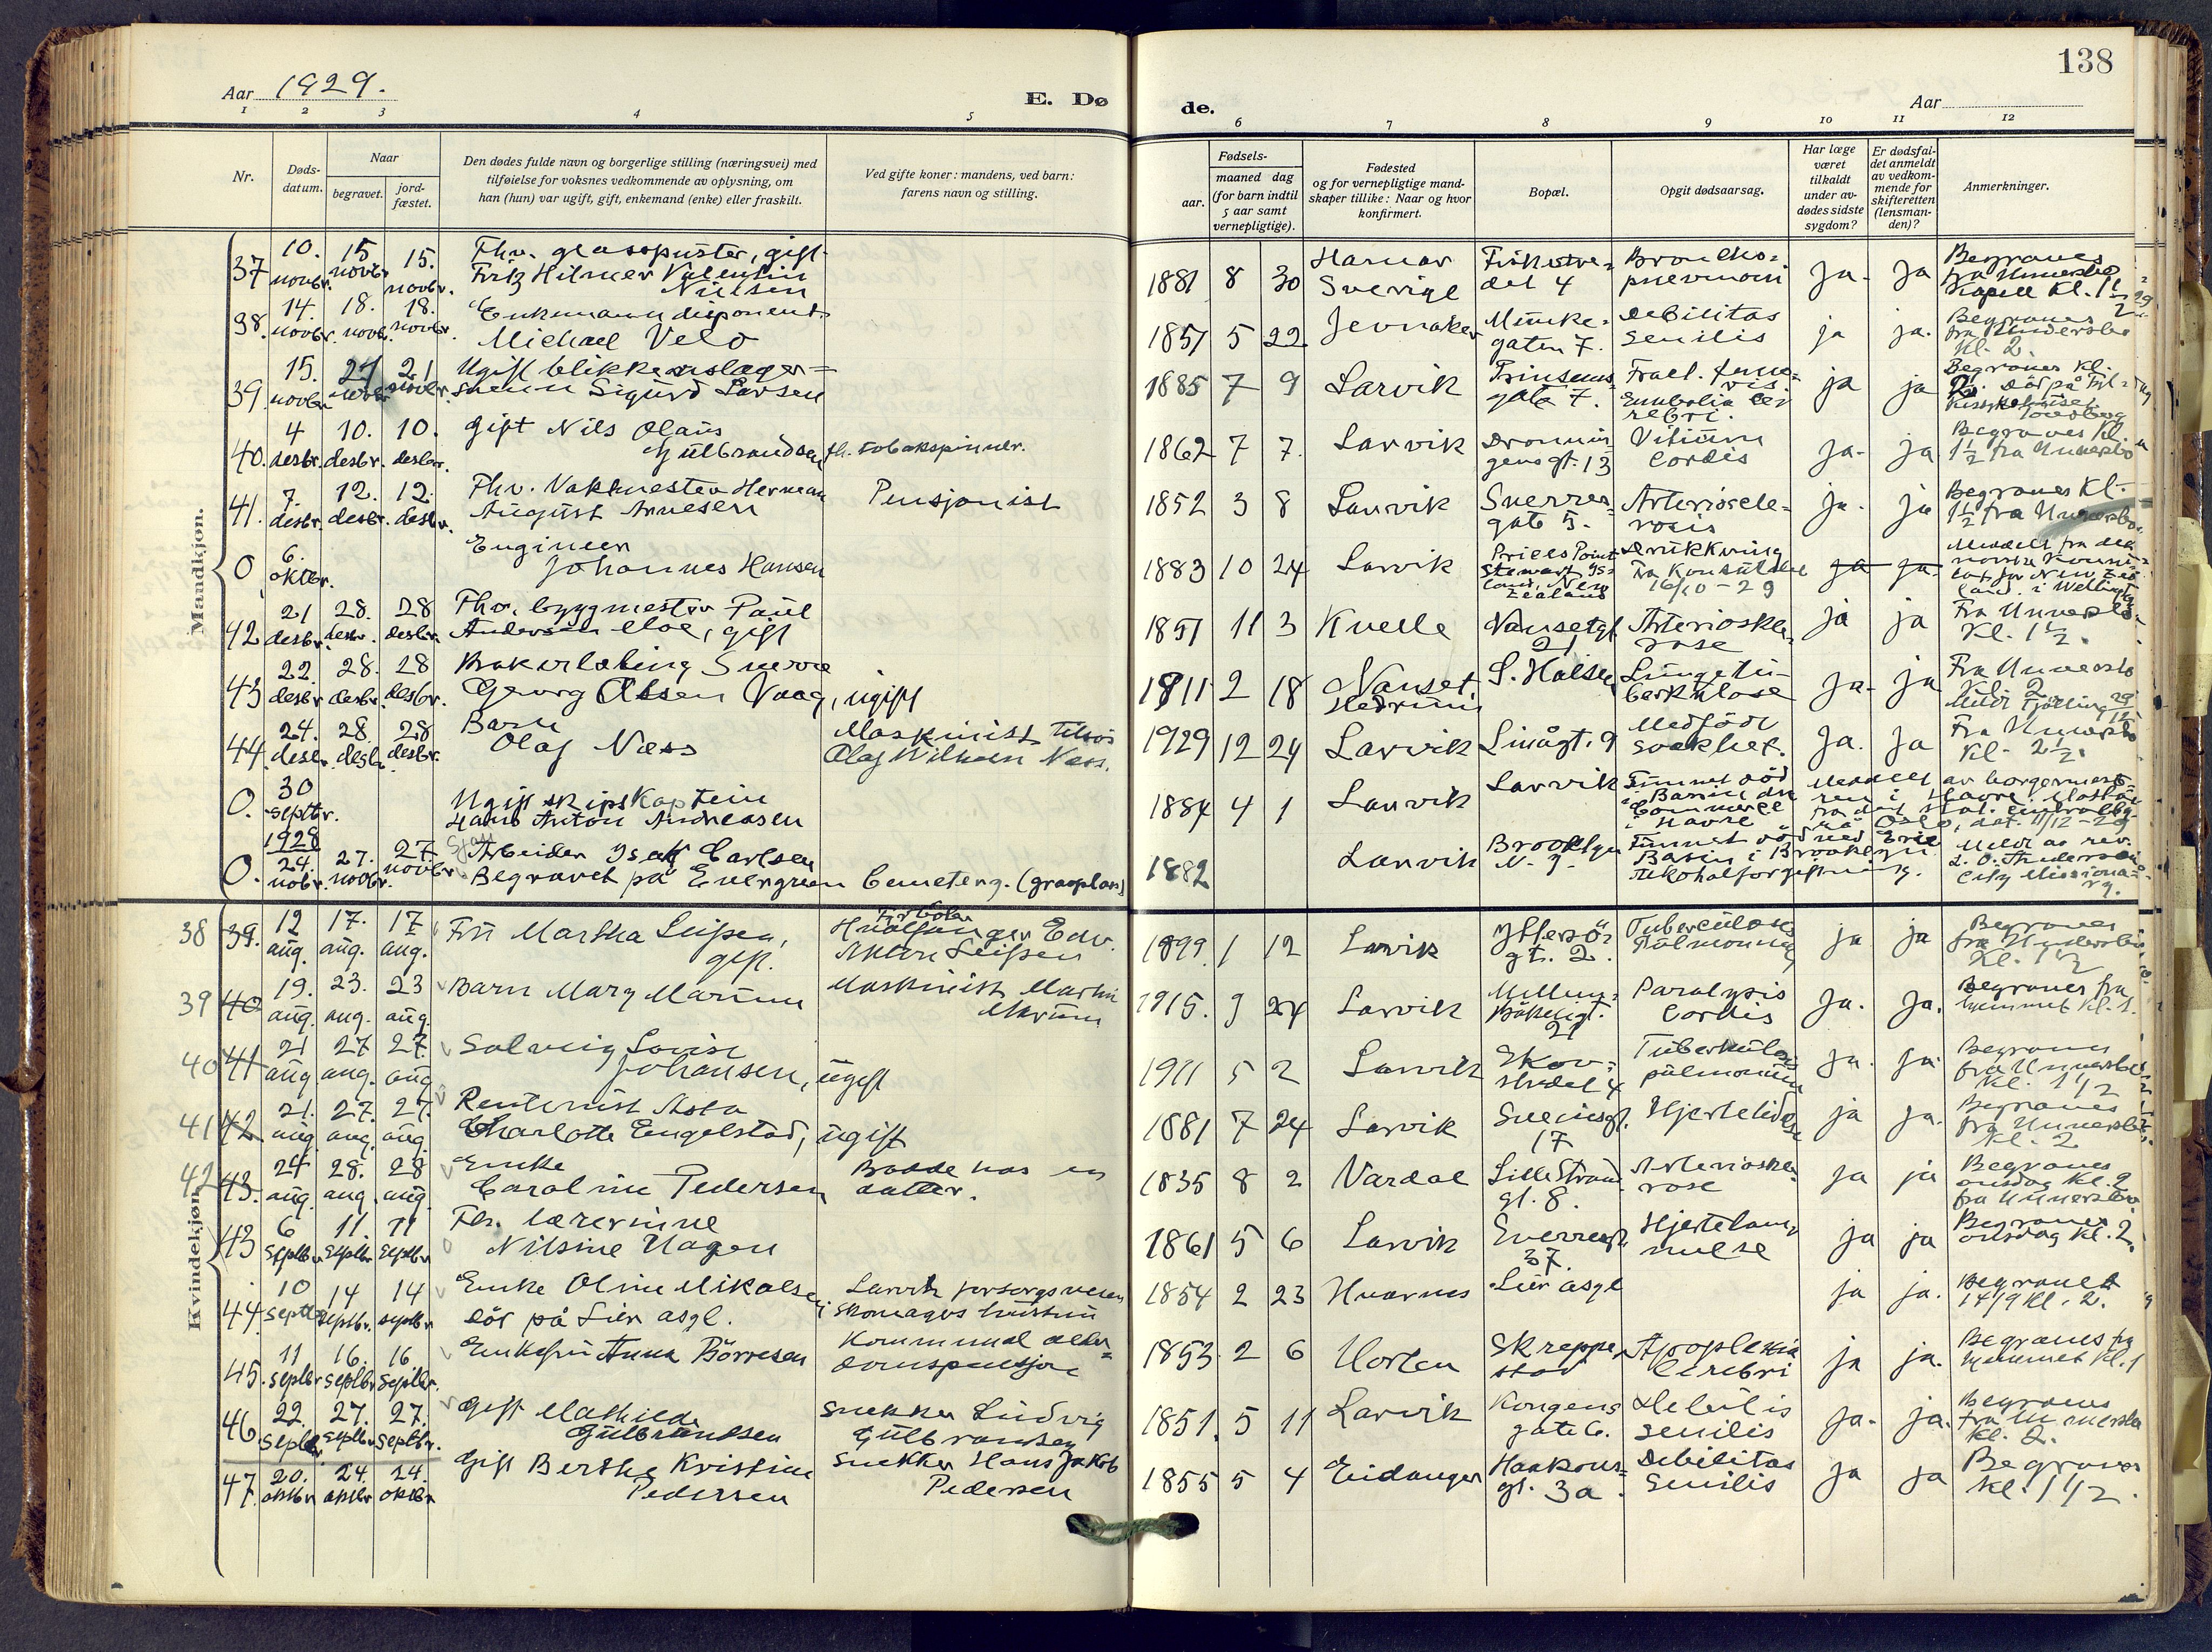 138
Aar 1929.
E. Dø
de.
Aar
1 2 3 4 5
6 7 8 9 10 11 12
Nr.
Døds-datum.
Naar
begravet.
jord-fæstet.
Den dødes fulde navn og borgerlige stilling (næringsvei) med
tilføielse for voksnes vedkommende av oplysning, om
han (hun) var ugift, gift, enkemand (enke) eller fraskilt.
Ved gifte koner: mandens, ved barn:
farens navn og stilling.
Fødsels-
aar.
maaned dag
(for barn indtil
5 aar samt
vernepligtige).
Fødested
og for vernepligtige mand-
skaper tillike: Naar og hvor
konfirmert.
Bopæl.
Opgit dødsaarsag.
Har læge
været
tilkaldt
under av-
dødes sidste
sygdom?
Er dødsfal-
det anmeldt
av vedkom-
mende for
skifteretten
(lensman-
den)?
Anmerkninger.
Mandkjøn.
37 10. novbr. 15 novbr. 15. novbr. Fhv. glasspuster, gift
Fritz Hilmer Valentin
Nilsen
1881 8 30 Sverige Broncho-
pneumoni ja ja Begraves
Kapell Kl. 1½
38. 14. novbr. 18. novb. 18. novbr. Enkemann disponent
Michael Velo
1851 5 22 Jevnaker Munke-
gaten 7. Debilitas
senilis ja ja. Begraves
Kl. 2.
39 15. novbr. 21 novbr. 21 novbr. Ugift blikkenslager-
svenn Sigurd Larsen
1885 7 9 Larvik Prinsens
gate 7. Fract.
Embolia cerebri. ja ja Begraves Kl.
40. 4 desbr. 10. desbr. 10. desbr. Gift Nils Olaus
Gulbrandsen fh. tobakspinner.
1862 7 7. Larvik Dronnin
gens gt. 13 Vitium
Cordis ja- ja Begraves Kl.
1½ fra
41. 7. desbr. 12. desbr. 12. desbr. Fhv. Vaktmester Herman
August Arnesen Pensjonist
1852 3 8 Larvik Sverres
gate 5. Arterioscle-
rosis ja- ja Begraves Kl.
1½ fra
0 6. oktbr. Engineer
Johannes Hansen
1883 10 24 Larvik Stewart
Land, New
Zealand Drukkning
16/10 - 29 ja ja
42 21 desbr. 28. desbr. 28 desbr. Fhv. byggmester Paul
Andersen Moe, gift
1851 11 3 Kvelle Nansetgt
21 Arterioskle-
rose ja ja Fra
Kl. 1½.
43 22. desbr 28. desbr. 28 desbr. Bakerlærling Sverre
Georg Olssen Vaag, ugift
1911 2 18 Nanset,
Hedrum S. Halsen Lungetu-
berkulose ja- ja Fra
Kl. 2
44 24. desb. 28. desb. 28 desbr. Barn
Olaf Næss Maskinist
Olaf Wilhelm Næss.
1929 12 24 Larvik Linågt. 9 Medfödt
svakhet. ja. ja Fra
Kl. 2½.
0. 30 septbr. Ugift skipskaptein
Hans Anton Andreasen
1884 4 1 Larvik Larvik Funnet död
i Havre
1928
0. 24. nobr. 27. novbr. 27. novbr Arbeider Isak Carlsen
Begravet på Evergreen Cemetery. (gravplass)
1882 Larvik Brooklyn
N. Y. Funnet död ved Erie
Basin i Brooklyn
Alkoholforgiftning.
Kvindekjøn.
38 39. 12 aug. 17. aug. 17 aug. Fru Martha Leifsen,
gift. Edv.
Anton Leifsen
1899. 1 12 Larvik Yttersö-
gt. 2. Tuberculosis
Pulmonum ja ja Begraves
Kl. 1½
39 40 19. aug. 23. aug. 23 aug. Barn Mary Marum Maskinist Martin
Marum
1915. 9 24 Larvik Paralysis
Cordis ja. ja. Begraves fra
hjemmet Kl. 1.
40 41 21 aug 27 aug. 27. aug Solveig Lovise
Johansen, ugift
1911 5 2 Larvik Skov-
stredet 4 Tuberkulosis
pulmonum ja. ja. Begraves
Kl. 1½
41 42 21. aug 27. aug. 27. aug Rentenist Asta
Charlotte Engelstad, ugift
1881 7 24 Larvik 17 Hjertelidelse ja ja. Begraves
Kl. 2
42 43. 24 aug. 28. aug. 28 aug Enke
Caroline Pedersen Bodde hos en
datter.
1835 8 2 Vardal Lille Strand
gt. 8. Arterioskle-
rose ja ja Begraves
onsdag Kl. 2
43 6 septbr 11. septbr. 11 septbr. Fh. lærerinne
Nilsine Hagen
1861 5 6 Larvik Sverresgt
37. Hjertelam-
melse ja ja Begraves
onsdag Kl. 2.
44. 10 septbr 14 septbr. 14 septbr Enke Oline Mikalsen,
dör på Lier asyl. Larvik forsorgsvesen
Skomagers hustru
1854 2 23 Hvarnes Lier asyl ja ja. Begravet
14/9 Kl. 2.
45. 11 septbr 16. septbr 16 septbr. Enkefru Anna Börresen Kommunal alder-
domspensjon
1853. 2 6 Horten Skreppe-
stad Apoplexia
Cerebri ja ja. Begraves fra
hjemmet Kl. 1
46 22. septbr. 27. septbr. 27. septbr. Gift Mathilde
Gulbrandsen Snekker Ludvig
Gulbrandsen
1851. 5 11 Larvik Kongens
gate 6. Debilitas
senilis ja- ja. Begraves
Kl. 2.
47. 20. oktbr 24. oktbr 24. oktbr. Gift Berthe Kristine
Pedersen Snekker Hans Jakob
Pedersen
1855 5 4 Eidanger Haakons-
gt. 3a. Debilitas
Senilis ja ja Begraves
Kl. 1½.